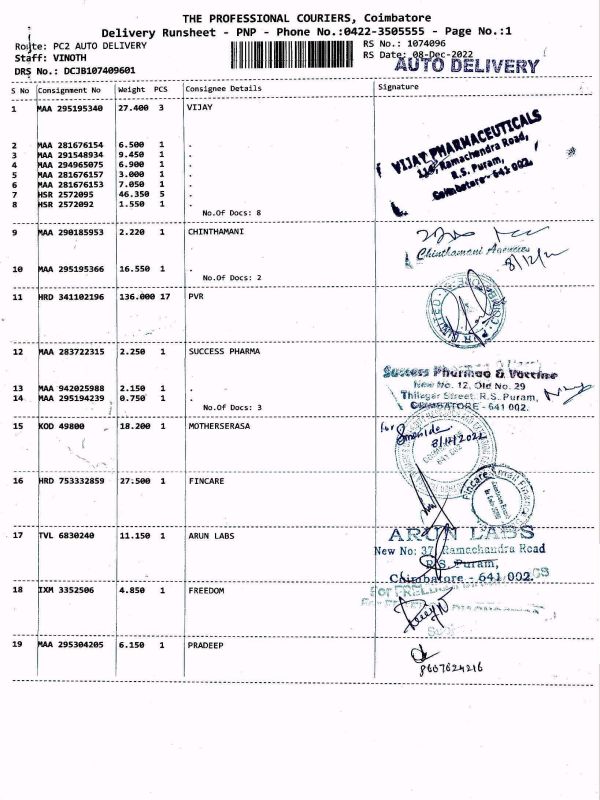 THE PROFESSIONAL COURIERS, Coimbatore
Delivery Runsheet - PNP - Phone No.:0422-3505555 - Page No.:1
Route: PC2 AUTO DELIVERY
RS No.: 1074096
Staff: VINOTH
RS Date: 08-Dec-2022
DRS No.: DCJB107409601
AUTO DELIVERY
S No Consignment No Weight PCS Consignee Details Signature
1 MAA 295195340 27.400 3 VIJAY
2 MAA 281676154 6.500 1 .
3 MAA 291548934 9.450 1 .
4 MAA 294965075 6.900 1 .
5 MAA 281676157 3.000 1 .
6 MAA 281676153 7.050 1 .
7 HSR 2572095 46.350 5 .
8 HSR 2572092 1.550 1 .
No.Of Docs: 8
VIJAY PHARMACEUTICALS
Ramachandra Road,
R.S. Puram,
Coimbatore - 641 002.
9 MAA 290185953 2.220 1 CHINTHAMANI
Chinthamani Agencies
8/12/22
10 MAA 295195366 16.550 1 .
No.Of Docs: 2
11 HRD 341102196 136.000 17 PVR
12 MAA 283722315 2.250 1 SUCCESS PHARMA
13 MAA 942025988 2.150 1 .
14 MAA 295194239 0.750 1 .
No.Of Docs: 3
Success Pharmaa & Vaccine
New No. 12, Old No. 29
Thilagar Street, R.S. Puram,
COIMBATORE - 641 002.
15 KOD 49800 18.200 1 MOTHERSERASA
for
8/12/2022
16 HRD 753332859 27.500 1 FINCARE
Fincare Small Finance
17 TVL 6830240 11.150 1 ARUN LABS
ARUN LABS
New No: 37, Ramachandra Road
R.S. Puram,
Coimbatore - 641 002.
18 IXM 3352506 4.850 1 FREEDOM
19 MAA 295304205 6.150 1 PRADEEP
8607624216